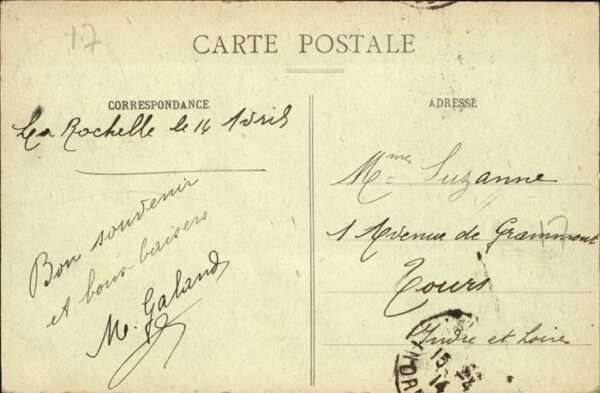 17
CARTE POSTALE
CORRESPONDANCE
La Rochelle le 14 Avril
Bon souvenir
et bons baisers
M. Galand
ADRESSE
Mme Suzanne
1 Avenue de Grammont
17
Tours
Indre et Loire
15-4
14
INDR